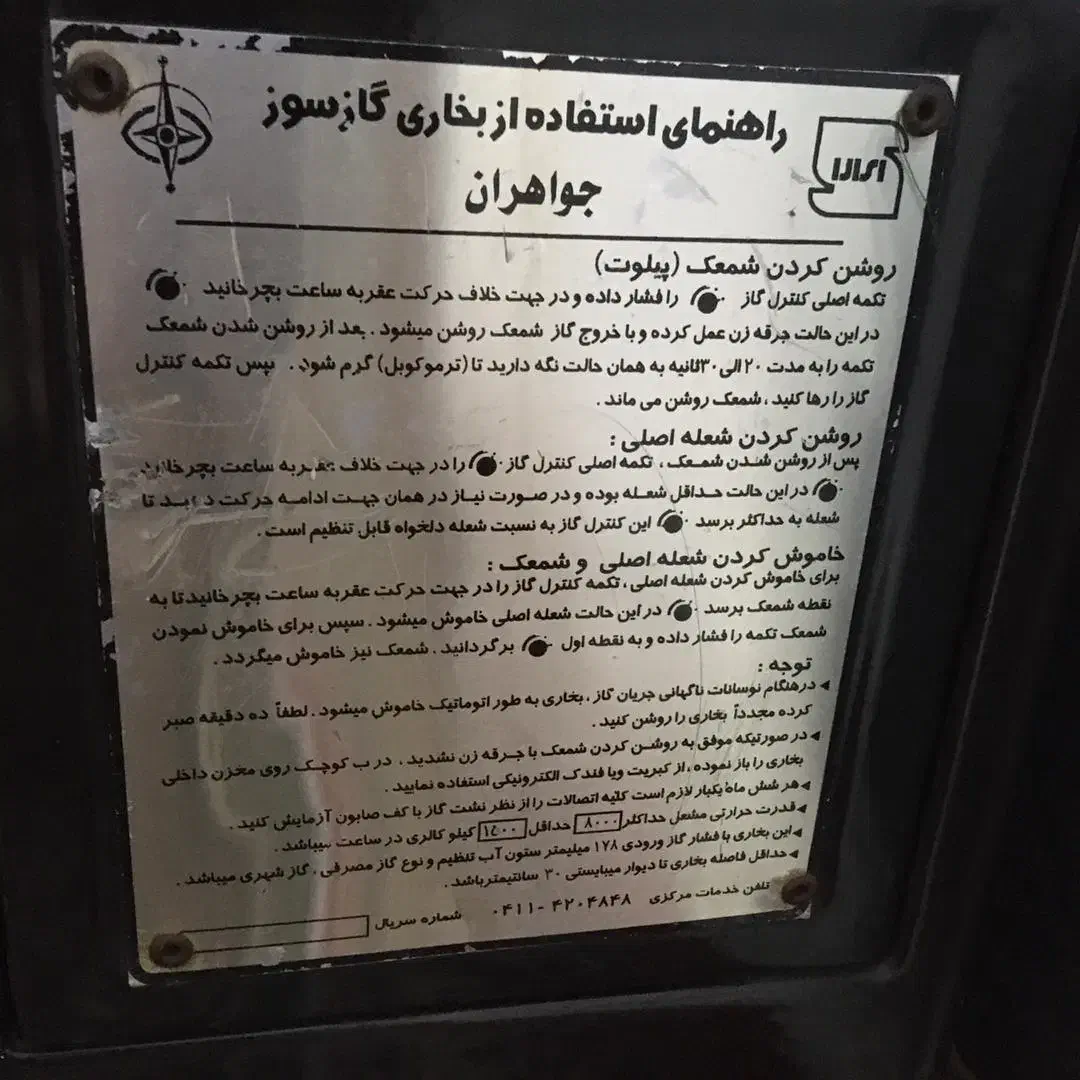 راهنمای استفاده از بخاری گازسوز
جواهران
روشن کردن شمعک (پیلوت)
تکمه اصلی کنترل گاز را فشار داده و در جهت خلاف حرکت عقربه ساعت بچرخانید
در این حالت جرقه زن عمل کرده و با خروج گاز شمعک روشن میشود . بعد از روشن شدن شمعک
تکمه را به مدت ۲۰ الی ۳۰ ثانیه به همان حالت نگه دارید تا (ترموکوبل) گرم شود . سپس تکمه کنترل
گاز را رها کنید ، شمعک روشن می ماند .
روشن کردن شعله اصلی :
پس از روشن شدن شمعک ، تکمه اصلی کنترل گاز را در جهت خلاف عقربه ساعت بچرخانید
در این حالت حداقل شعله بوده و در صورت نیاز در همان جهت ادامه حرکت دهید تا
شعله به حداکثر برسد این کنترل گاز به نسبت شعله دلخواه قابل تنظیم است .
خاموش کردن شعله اصلی و شمعک :
برای خاموش کردن شعله اصلی ، تکمه کنترل گاز را در جهت حرکت عقربه ساعت بچرخانید تا به
نقطه شمعک برسد در این حالت شعله اصلی خاموش میشود . سپس برای خاموش نمودن
شمعک تکمه را فشار داده و به نقطه اول برگردانید . شمعک نیز خاموش میگردد .
توجه :
در هنگام نوسانات ناگهانی جریان گاز ، بخاری به طور اتوماتیک خاموش میشود . لطفاً ده دقیقه صبر
کرده مجدداً بخاری را روشن کنید .
در صورتیکه موفق به روشن کردن شمعک با جرقه زن نشدید ، درب کوچک روی مخزن داخلی
بخاری را باز نموده ، از کبریت ویا فندک الکترونیکی استفاده نمایید .
هر شش ماه یکبار لازم است کلیه اتصالات را از نظر نشت گاز با کف صابون آزمایش کنید .
قدرت حرارتی مشعل حداکثر ۸۰۰۰ حداقل ۱۴۰۰ کیلو کالری در ساعت میباشد .
این بخاری با فشار گاز ورودی ۱۷۸ میلیمتر ستون آب تنظیم و نوع گاز مصرفی ، گاز شهری میباشد .
حداقل فاصله بخاری تا دیوار میبایستی ۳۰ سانتیمتر باشد .
تلفن خدمات مرکزی ۴۲۰۴۸۴۸ - ۰۴۱۱ شماره سریال